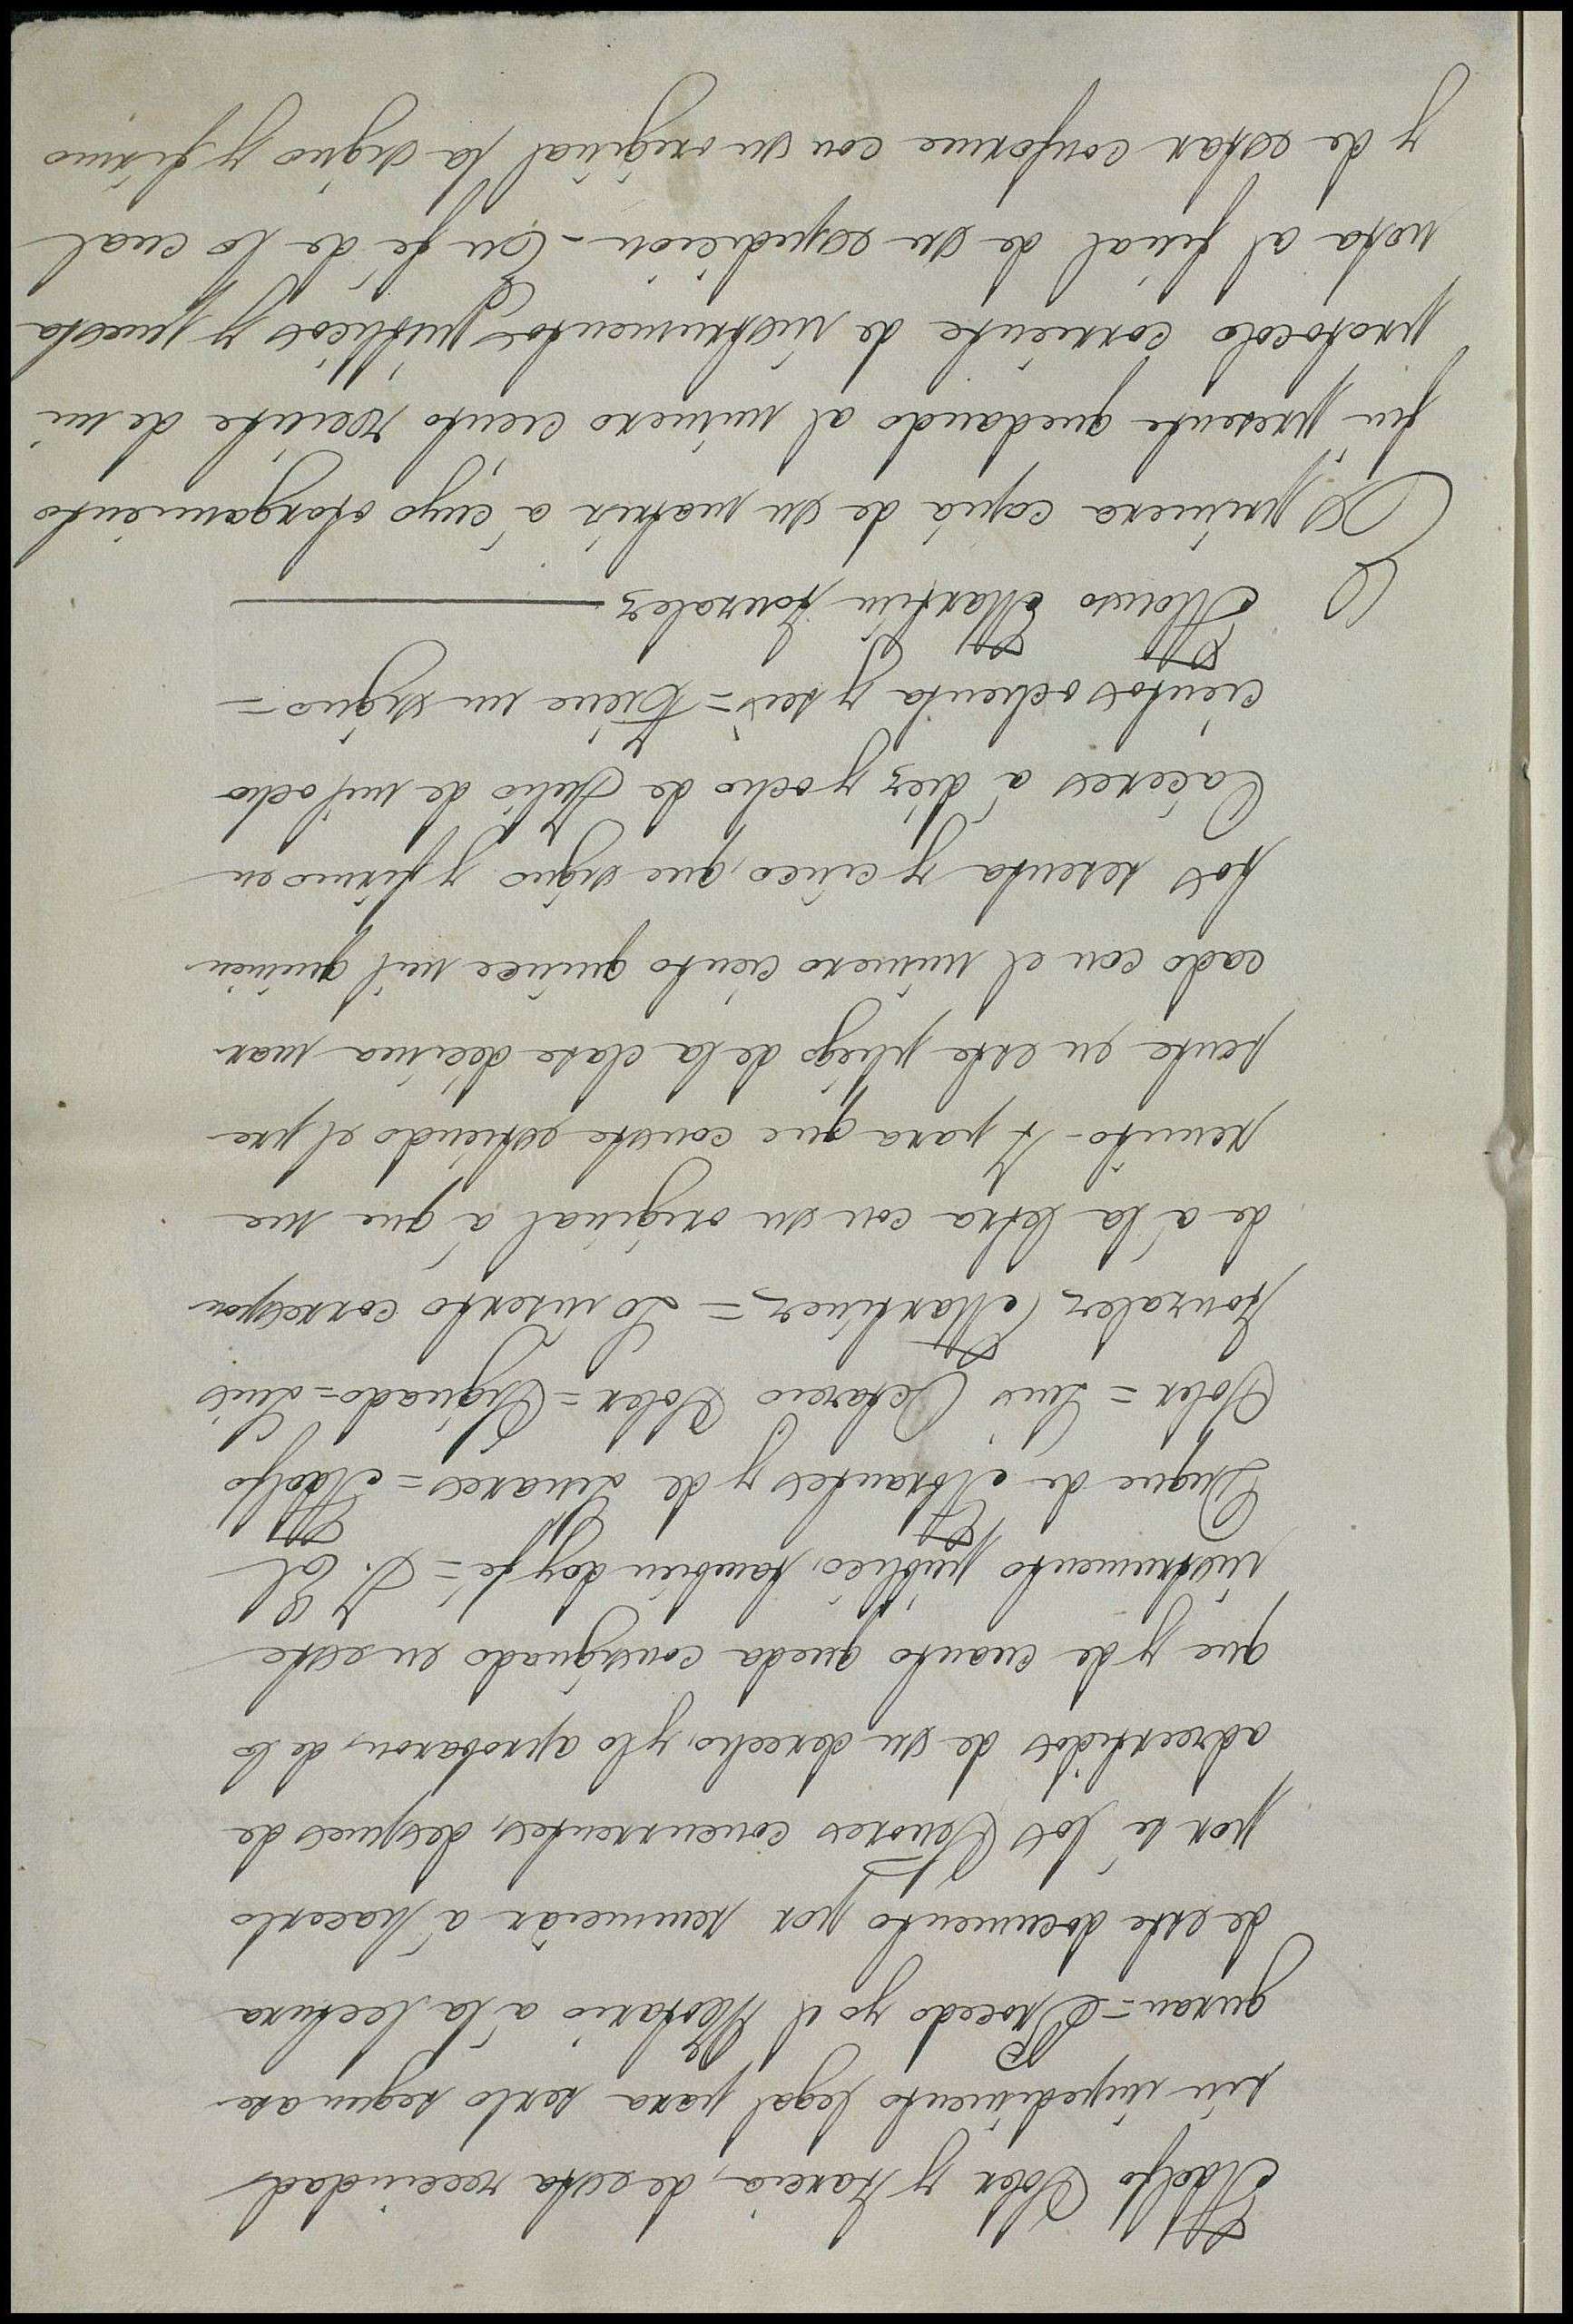 Adolfo Soler y Garcia, de esta vecindad
sin impedimento legal para serlo segun ase
guran = Procedo yo el Notario á la lectura
de este documento por renunciar á hacerlo
por sí los Señores concurrentes, despues de
advertidos de su derecho, y lo aprobaron, de lo
que y de cuanto queda consignado en este
instrumento público, tambien doy fé = J. El
Duque de Abrantes y de Linares = Adolfo
Soler = Luis Acharcio Soler = Signado = Luis
Gonzalez Martinez = Lo inserto correspon
de á la letra con su original á que me
remito - Y para que conste estiendo el pre
sente en este pliego de la clase décima mar
cado con el número ciento quince mil quinien
tos setenta y cinco, que signo y firmo en
Cáceres á diez y ocho de Julio de mil ocho
cientos ochenta y seis = Tiene un signo =
Alonso Martin Gonzalez
Es primera copia de su matriz á cuyo otorgamiento
fui presente quedando al número ciento veinte de mi
protocolo corriente de instrumentos públicos y puesta
nota al final de su expedición - En fé de lo cual
y de estar conforme con su original la signo y firmo